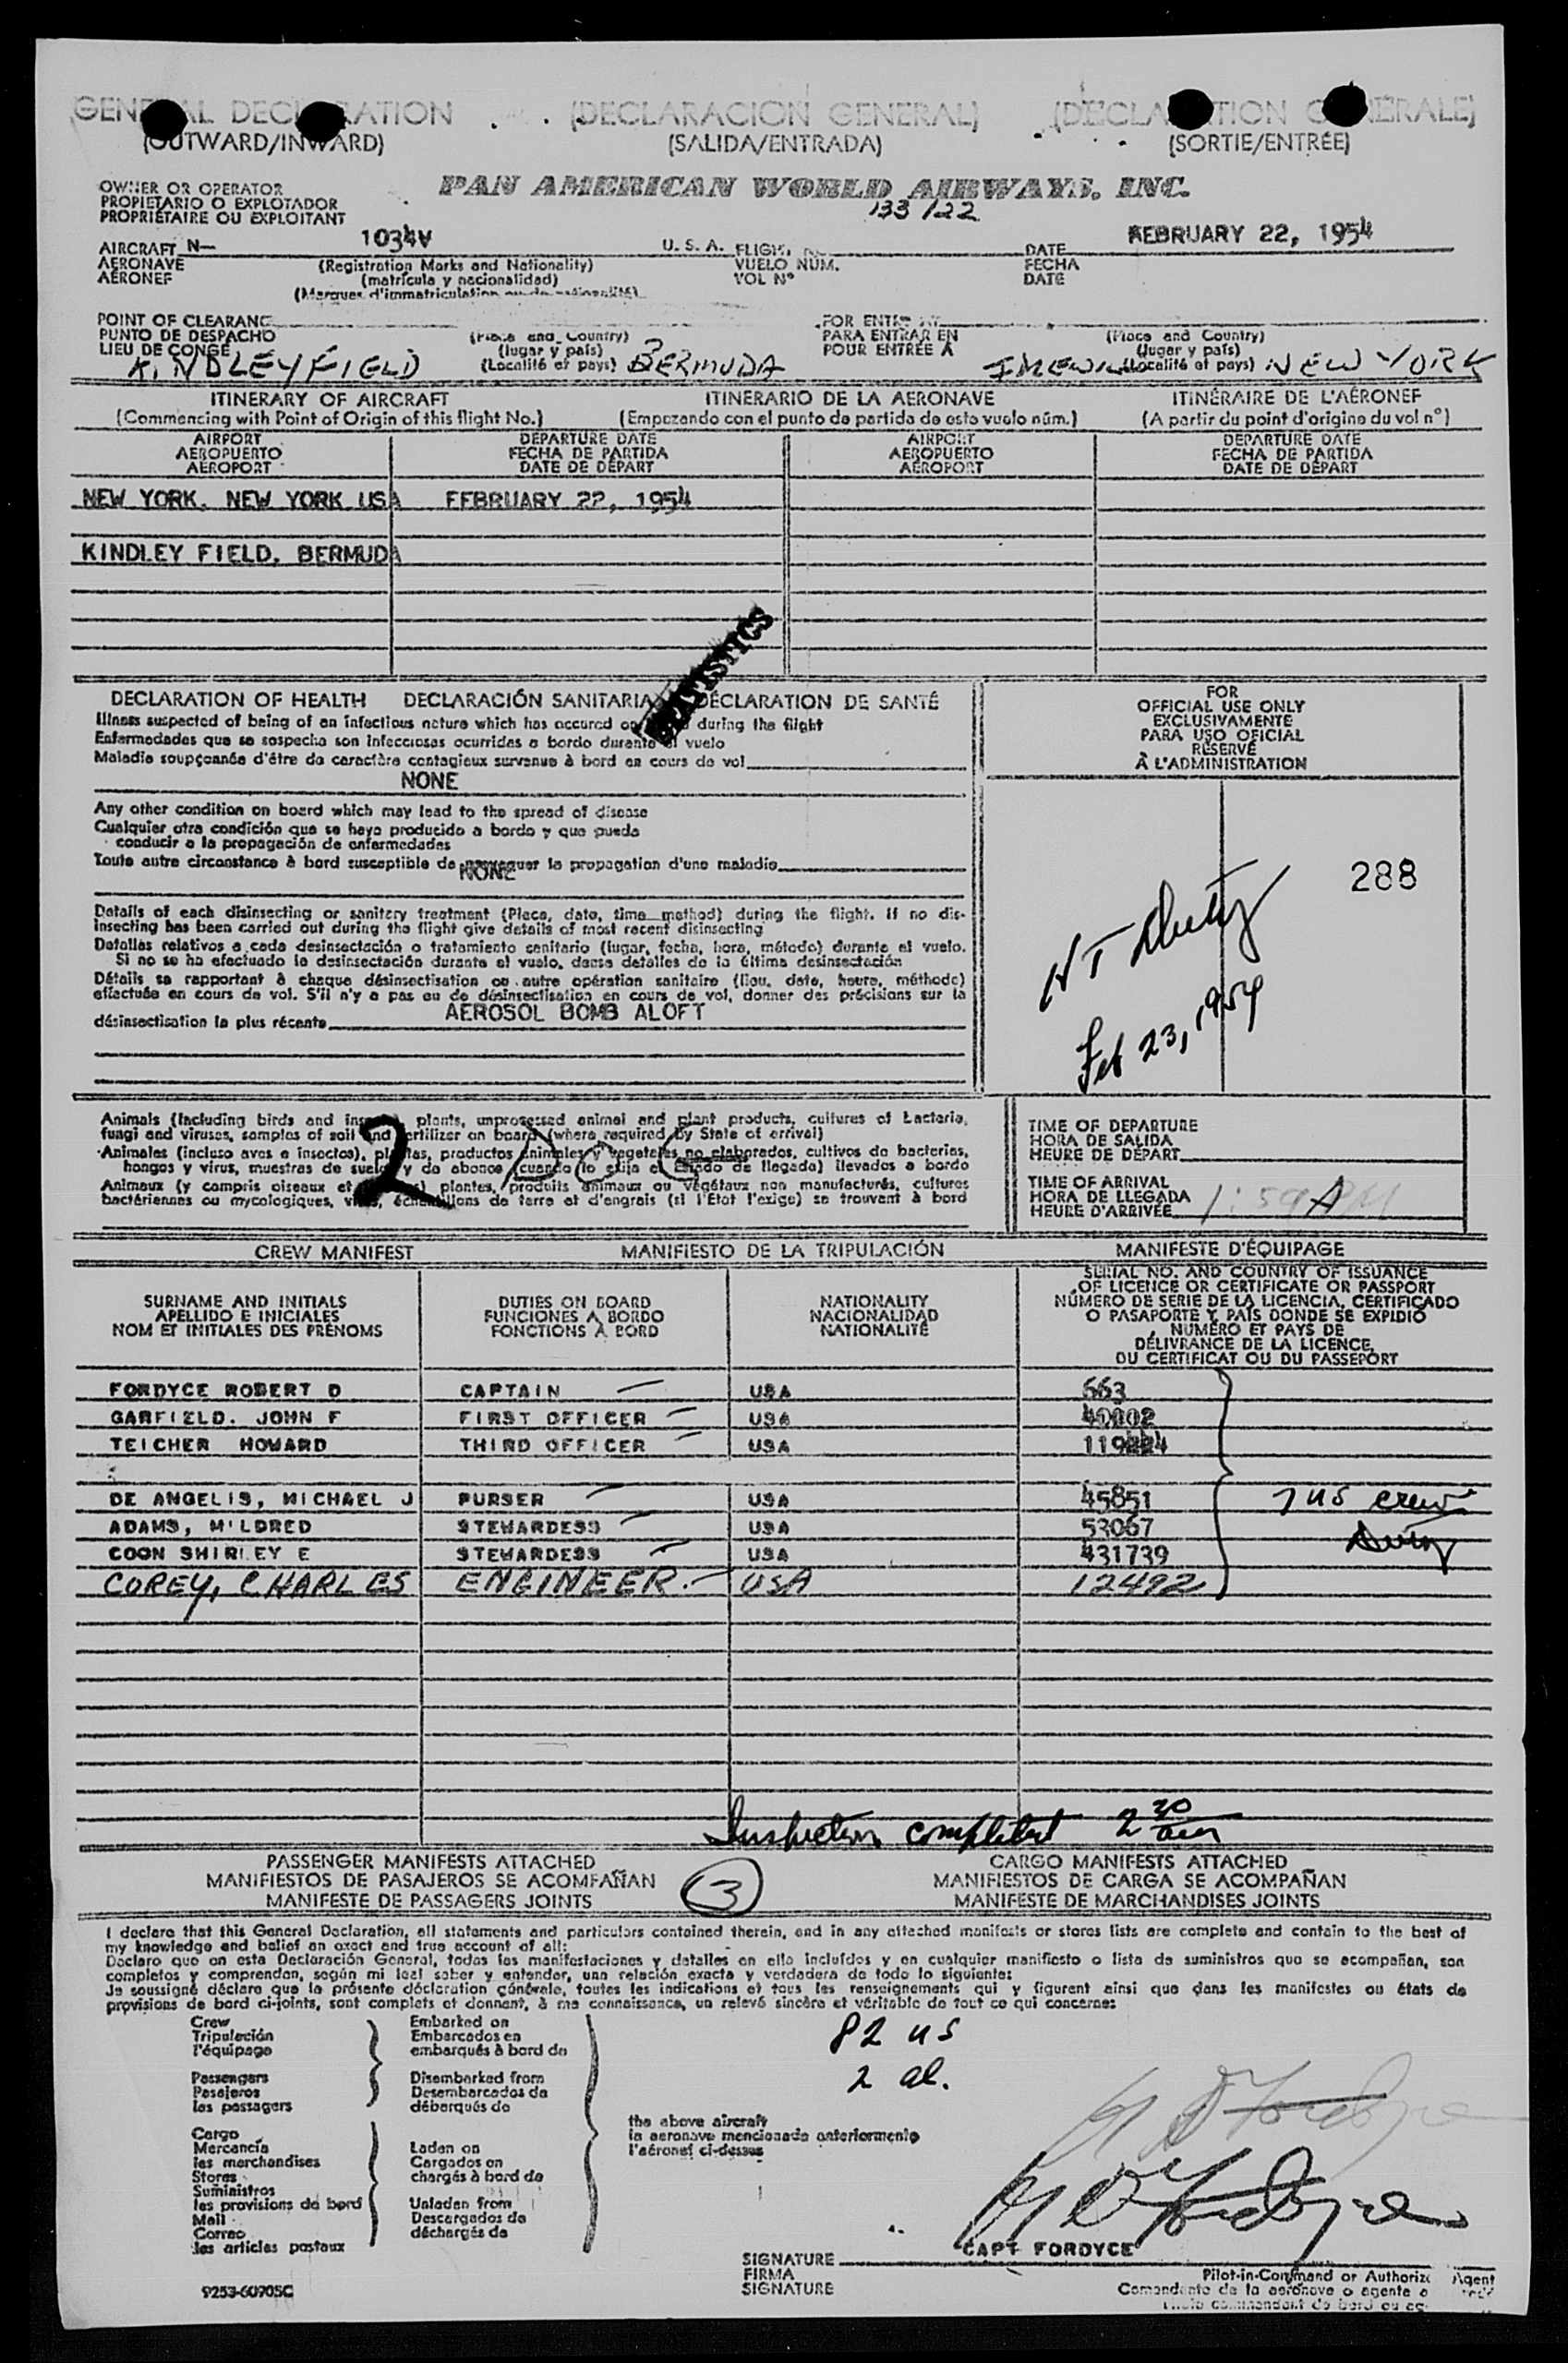 GENERAL DECLARATION (DECLARACION GENERAL) (DÉCLARATION GÉNÉRALE)
(OUTWARD/INWARD) (SALIDA/ENTRADA) (SORTIE/ENTRÉE)
OWNER OR OPERATOR
PROPIETARIO O EXPLOTADOR
PROPRIÉTAIRE OU EXPLOITANT
PAN AMERICAN WORLD AIRWAYS, INC.
133/22
AIRCRAFT N- 1034V U. S. A. FLIGHT DATE FEBRUARY 22, 1954
AERONAVE (Registration Marks and Nationality) VUELO NÚM. FECHA
AÉRONEF (matrícula y nacionalidad) VOL Nº DATE
(Marques d'immatriculation ou de nationalité)
POINT OF CLEARANCE FOR ENTRY AT
PUNTO DE DESPACHO (Place and Country) PARA ENTRAR EN (Place and Country)
LIEU DE CONGÉ (lugar y país) POUR ENTRÉE À (lugar y país)
KINDLEY FIELD (Localité et pays) BERMUDA (Localité et pays) NEW YORK
ITINERARY OF AIRCRAFT ITINERARIO DE LA AERONAVE ITINÉRAIRE DE L'AÉRONEF
(Commencing with Point of Origin of this flight No.) (Empezando con el punto de partida de este vuelo núm.) (A partir du point d'origine du vol nº)
AIRPORT DEPARTURE DATE AIRPORT DEPARTURE DATE
AEROPUERTO FECHA DE PARTIDA AEROPUERTO FECHA DE PARTIDA
AÉROPORT DATE DE DÉPART AÉROPORT DATE DE DÉPART
NEW YORK, NEW YORK USA FEBRUARY 22, 1954
KINDLEY FIELD, BERMUDA
STATISTICS
DECLARATION OF HEALTH DECLARACIÓN SANITARIA DÉCLARATION DE SANTÉ
Illness suspected of being of an infectious nature which has occured on during the flight
Enfermedades que se sospecha son infecciosas ocurridas a bordo durante el vuelo
Maladie soupçonnée d'être de caractère contagieux survenue à bord en cours de vol
NONE
Any other condition on board which may lead to the spread of disease
Cualquier otra condición que se haya producido a bordo y que pueda
conducir a la propagación de enfermedades
Toute autre circonstance à bord susceptible de provoquer la propagation d'une maladie
NONE
Details of each disinsecting or sanitary treatment (Place, date, time method) during the flight. If no dis-
insecting has been carried out during the flight give details of most recent disinsecting
Detalles relativos a cada desinsectación o tratamiento sanitario (lugar, fecha, hora, método) durante el vuelo.
Si no se ha efectuado la desinsectación durante el vuelo, dense detalles de la última desinsectación
Détails se rapportant à chaque désinsectisation ou autre opération sanitaire (lieu, date, heure, méthode)
effectuée en cours de vol. S'il n'y a pas eu de désinsectisation en cours de vol, donner des précisions sur la
désinsectisation la plus récente AEROSOL BOMB ALOFT
FOR
OFFICIAL USE ONLY
EXCLUSIVAMENTE
PARA USO OFICIAL
RÉSERVÉ
À L'ADMINISTRATION
288
NT Duty
Feb 23, 1954
Animals (Including birds and insects) plants, unprocessed animal and plant products, cultures of bacteria,
fungi and viruses, samples of soil and fertilizer on board (where required by State of arrival)
Animales (incluso aves e insectos), plantas, productos animales y vegetales no elaborados, cultivos de bacterias,
hongos y virus, muestras de suelo y de abonos (cuando lo exija el Estado de llegada) llevados a bordo
Animaux (y compris oiseaux et insectes) plantes, produits animaux ou végétaux non manufacturés, cultures
bactériennes ou mycologiques, virus, échantillons de terre et d'engrais (si l'État l'exige) se trouvant à bord
2 DOG
TIME OF DEPARTURE
HORA DE SALIDA
HEURE DE DÉPART
TIME OF ARRIVAL
HORA DE LLEGADA
HEURE D'ARRIVÉE 1:59 A
CREW MANIFEST MANIFIESTO DE LA TRIPULACIÓN MANIFESTE D'ÉQUIPAGE
SURNAME AND INITIALS
APELLIDO E INICIALES
NOM ET INITIALES DES PRÉNOMS
DUTIES ON BOARD
FUNCIONES A BORDO
FONCTIONS À BORD
NATIONALITY
NACIONALIDAD
NATIONALITÉ
SERIAL NO. AND COUNTRY OF ISSUANCE
OF LICENCE OR CERTIFICATE OR PASSPORT
NÚMERO DE SERIE DE LA LICENCIA, CERTIFICADO
O PASAPORTE Y PAÍS DONDE SE EXPIDIÓ
NUMÉRO ET PAYS DE
DÉLIVRANCE DE LA LICENCE,
DU CERTIFICAT OU DU PASSEPORT
FORDYCE ROBERT D CAPTAIN USA 663
GARFIELD. JOHN F FIRST OFFICER USA 40002
TEICHER HOWARD THIRD OFFICER USA 119224
DE ANGELIS, MICHAEL J PURSER USA 45851
ADAMS, MILDRED STEWARDESS USA 53067
COON SHIRLEY E STEWARDESS USA 431739
COREY, CHARLES ENGINEER. USA 12492
7 US crew
Duty
Inspection completed 2 30 am
PASSENGER MANIFESTS ATTACHED CARGO MANIFESTS ATTACHED
MANIFIESTOS DE PASAJEROS SE ACOMPAÑAN 3 MANIFIESTOS DE CARGA SE ACOMPAÑAN
MANIFESTE DE PASSAGERS JOINTS MANIFESTE DE MARCHANDISES JOINTS
I declare that this General Declaration, all statements and particulars contained therein, and in any attached manifests or stores lists are complete and contain to the best of
my knowledge and belief an exact and true account of all:
Declaro que en esta Declaración General, todas las manifestaciones y detalles en ella incluídos y en cualquier manifiesto o lista de suministros que se acompañan, son
completos y comprenden, según mi leal saber y entender, una relación exacta y verdadera de todo lo siguiente:
Je soussigné déclare que la présente déclaration générale, toutes les indications et tous les renseignements qui y figurent ainsi que dans les manifestes ou états de
provisions de bord ci-joints, sont complets et donnent, à ma connaissance, un relevé sincère et véritable de tout ce qui concerne:
Crew Embarked on
Tripulación Embarcados en
l'équipage embarqués à bord de
Passengers Disembarked from
Pasajeros Desembarcados de
les passagers débarqués de
82 US
2 al.
the above aircraft
la aeronave mencionada anteriormente
l'aéronef ci-dessus
Cargo
Mercancía Laden on
les marchandises Cargados en
Stores chargés à bord de
Suministros
les provisions de bord Unladen from
Mail Descargados de
Correo déchargés de
les articles postaux
R D Fordyce
R D Fordyce
CAPT FORDYCE
SIGNATURE
FIRMA
SIGNATURE
Pilot-in-Command or Authorized Agent
Comandante de la aeronave o agente
9253-60905C